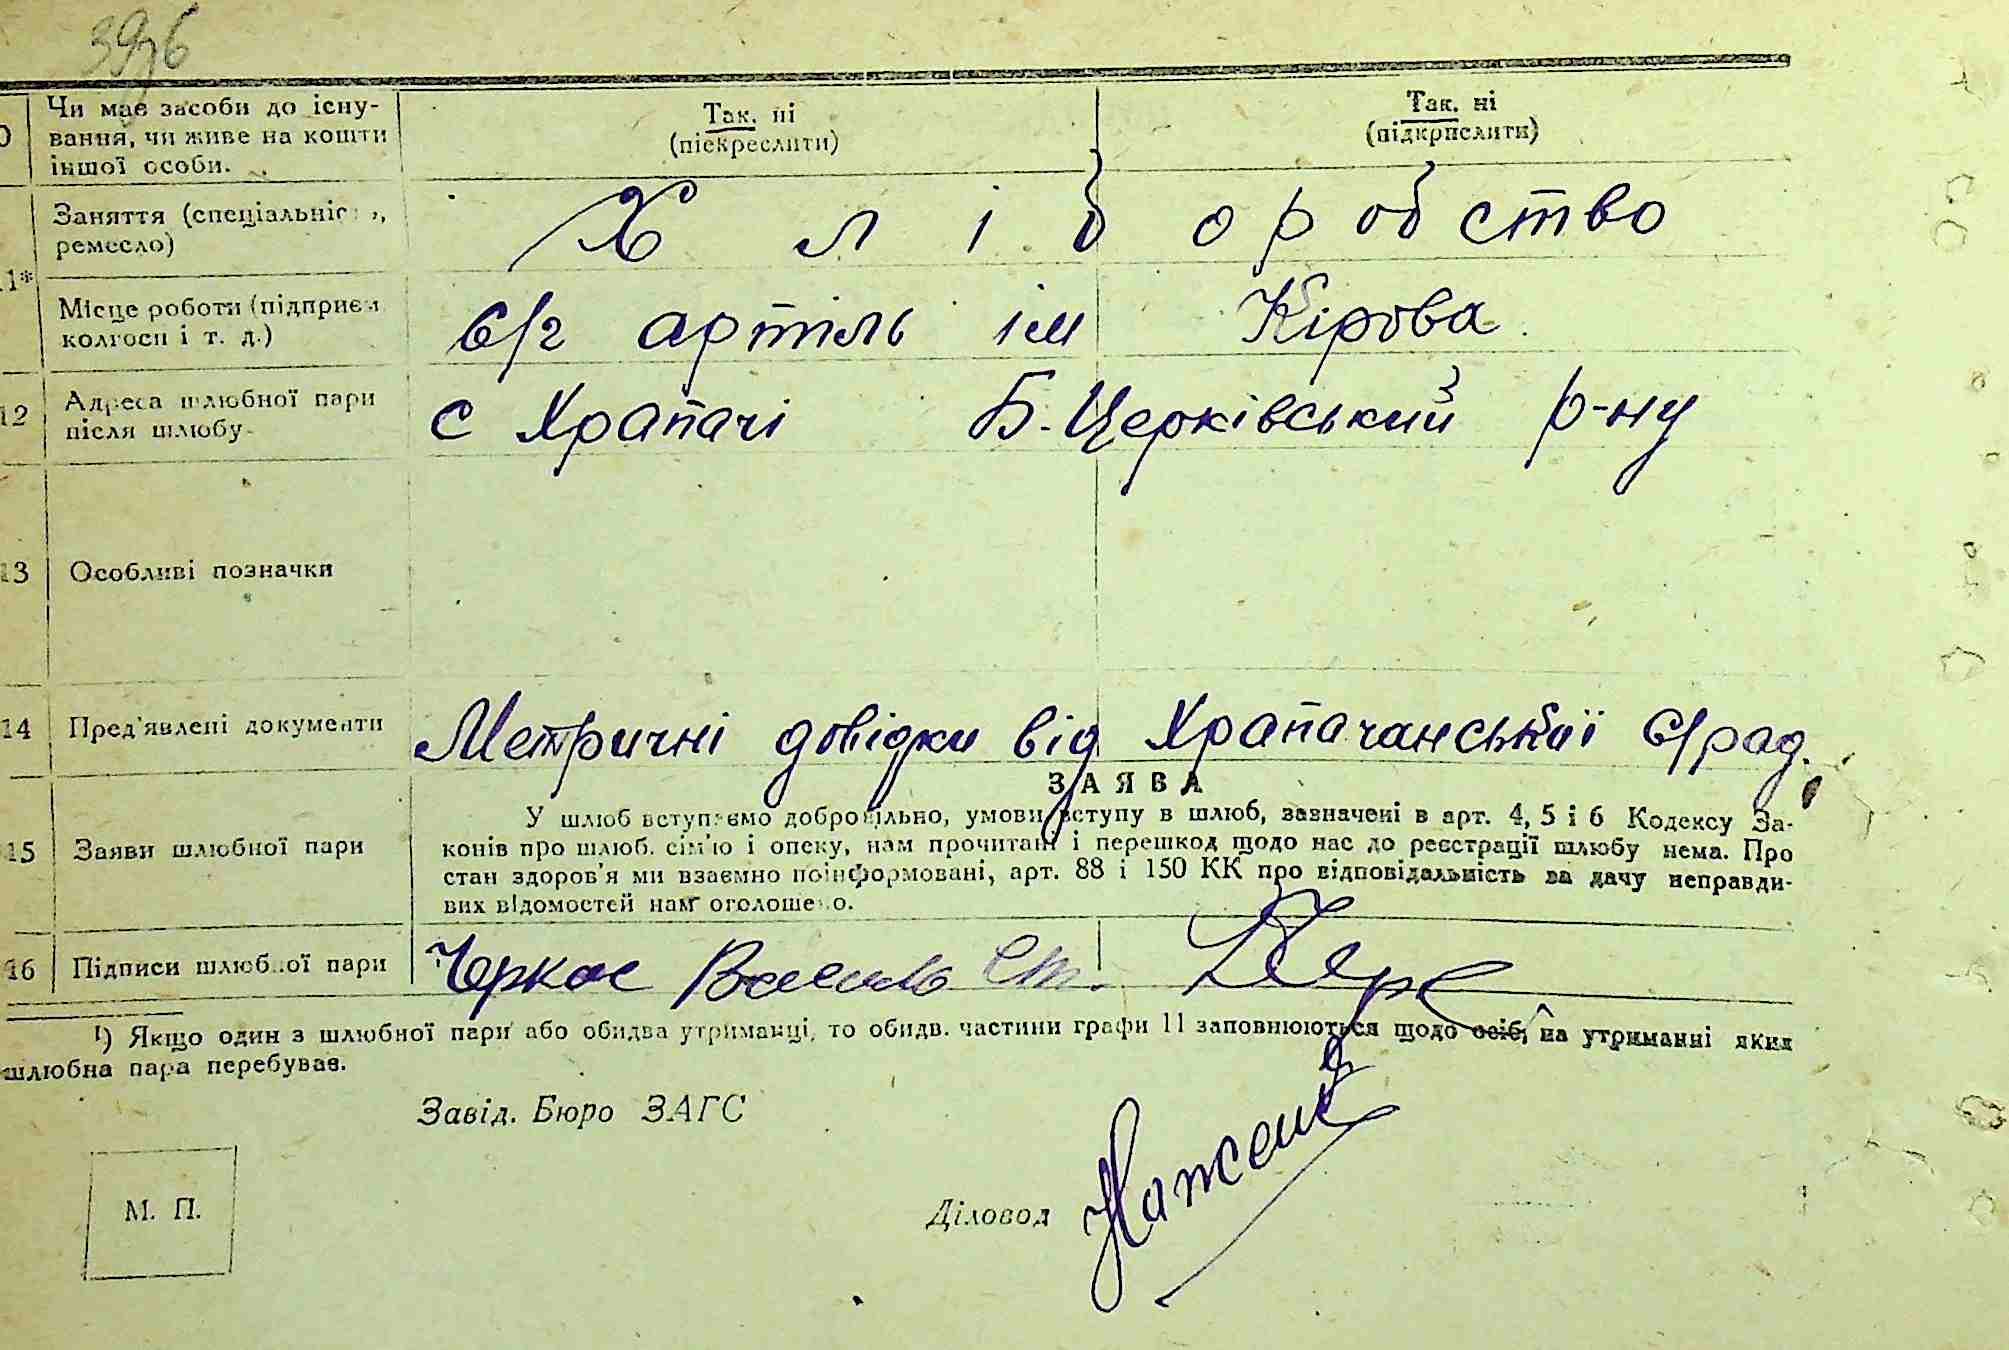 39
Чи має засоби до існу-
вання, чи живе на кошти
іншої особи.
Так. ні
(піекреслити)
Так. ні
(підкрпслити)
11*
Заняття (спеціальніс
ремесло)
Хліборобство
Місце роботи (підприєм
колгосп і т. д.)
с/г артіль ім Кірова
12
Адреса шлюбної пари
після шлюбу
с Храпачі Б. Церківський р-ну
13
Особливі позначки
14
Пред'явлені документи
Метричні довідки від Храпачанської с/рад.
15
Заяви шлюбної пари
ЗАЯВА
У шлюб вступаємо добровільно, умови вступу в шлюб, зазначені в арт. 4, 5 і 6 Кодексу За-
конів про шлюб. сім'ю і опеку, нам прочитані і перешкод щодо нас до реєстрації шлюбу нема. Про
стан здоров'я ми взаємно поінформовані, арт. 88 і 150 КК про відповідальність за дачу неправди-
вих відомостей нам оголошено.
16
Підписи шлюбної пари
Черкас Василь Ст.
¹) Якщо один з шлюбної пари або обидва утриманці, то обидв. частини графи 11 заповнюються щодо осіб, на утриманні яких
шлюбна пара перебуває.
Завід. Бюро ЗАГС
М. П.
Діловод